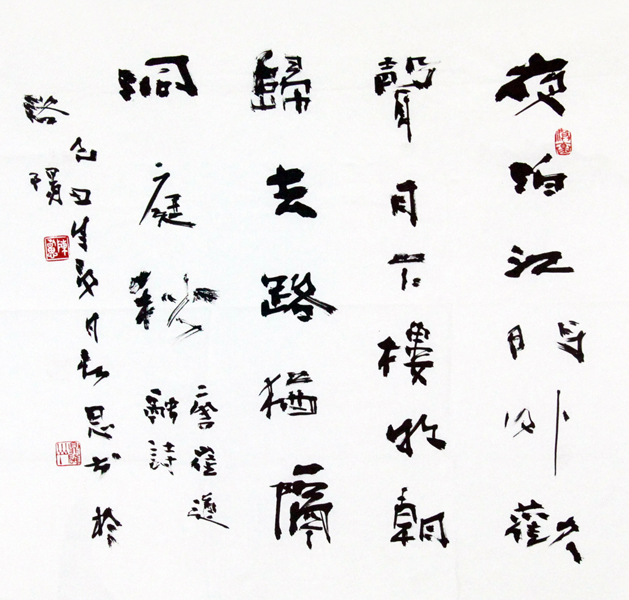 夜泊江門外歡
聲月下樓明朝
歸去路猶隔
洞庭秋
唐崔道
融詩
己丑年夏月